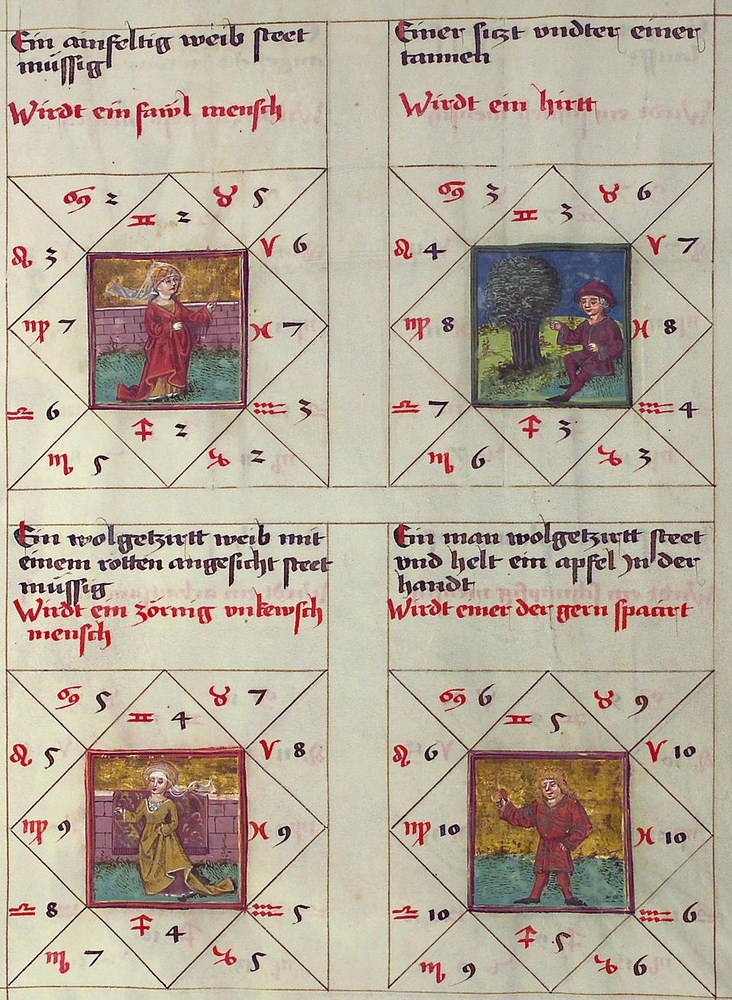 Ein ainfeltig weib steet
müssig
Wirdt ein fawl mensch
♋ 2
♊ 2
♉ 5
♌ 3
♈ 6
♍ 7
♓ 7
♎ 6
♒ 3
♏ 5
♐ 2
♑ 2
Einer sizt vndter einer
tannen
Wirdt ein hirtt
♋ 3
♊ 3
♉ 6
♌ 4
♈ 7
♍ 8
♓ 8
♎ 7
♒ 4
♏ 6
♐ 3
♑ 3
Ein wolgetzirtt weib mit
einem rotten angesicht steet
müssig
Wirdt ein zörnig vnkewsch
mensch
♋ 5
♊ 4
♉ 7
♌ 5
♈ 8
♍ 9
♓ 9
♎ 8
♒ 5
♏ 7
♐ 4
♑ 5
Ein man wolgetzirtt steet
vnd helt ein apfel jn der
handt
Wirdt einer der gern spacirt
♋ 6
♊ 5
♉ 9
♌ 6
♈ 10
♍ 10
♓ 10
♎ 10
♒ 6
♏ 9
♐ 5
♑ 6